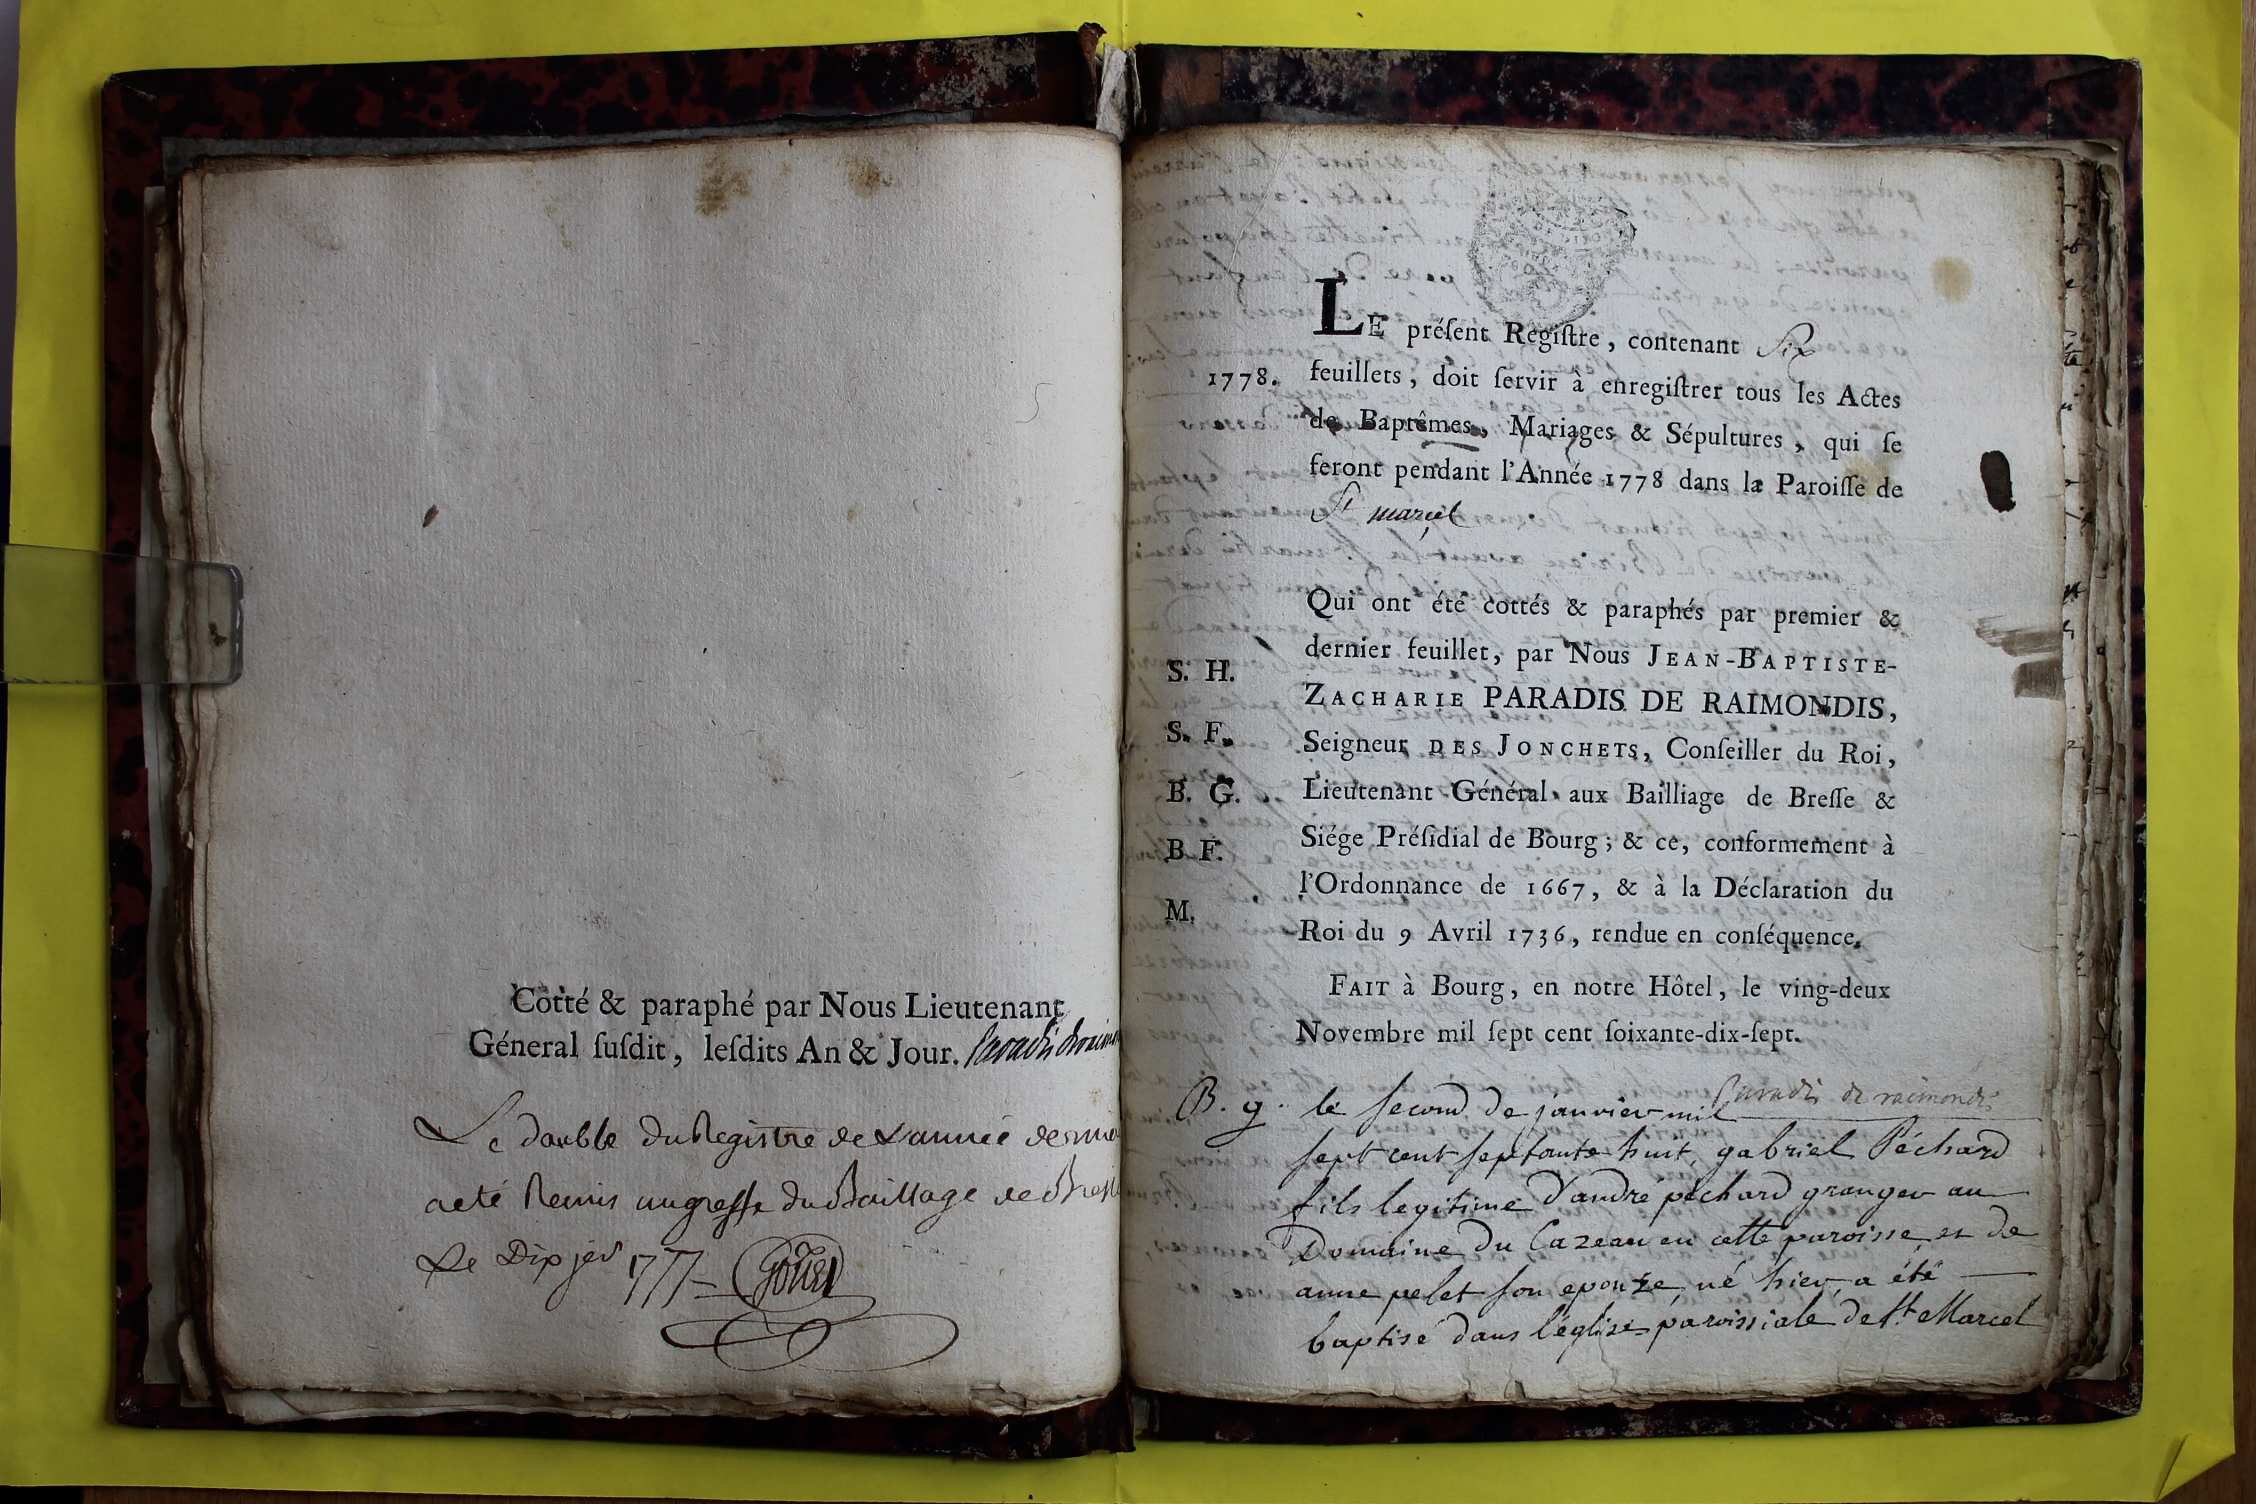 Cotté & paraphé par Nous Lieutenant
Géneral ſuſdit, leſdits An & Jour. Paradis de raimon
Le double du Registre de L'année derniere
a eté Remis au greffe du Baillage de Bresse
Le Dix jer 1777
LE préſent Regiſtre, contenant Six
1778. feuillets, doit ſervir à enregiſtrer tous les Actes
de Baptêmes, Mariages & Sépultures, qui ſe
feront pendant l'Année 1778 dans la Paroiſſe de
St marcel
Qui ont été cottés & paraphés par premier &
dernier feuillet, par Nous JEAN-BAPTISTE-
S. H. ZACHARIE PARADIS DE RAIMONDIS,
S. F. Seigneur DES JONCHETS, Conſeiller du Roi,
B. G. Lieutenant Général aux Bailliage de Breſſe &
B F. Siége Préſidial de Bourg; & ce, conformement à
l'Ordonnance de 1667, & à la Déclaration du
M. Roi du 9 Avril 1736, rendue en conſéquence.
FAIT à Bourg, en notre Hôtel, le ving-deux
Novembre mil ſept cent ſoixante-dix-ſept.
Paradis de raimondis
B. g. le second de janvier mil
sept cent septante huit, gabriel Péchard
fils legitime d'andré péchard granger au
Domaine du Cazeau en cette paroisse, et de
anne pelet son epouze, né hier, a été
baptisé dans l'église paroissiale de St Marcel